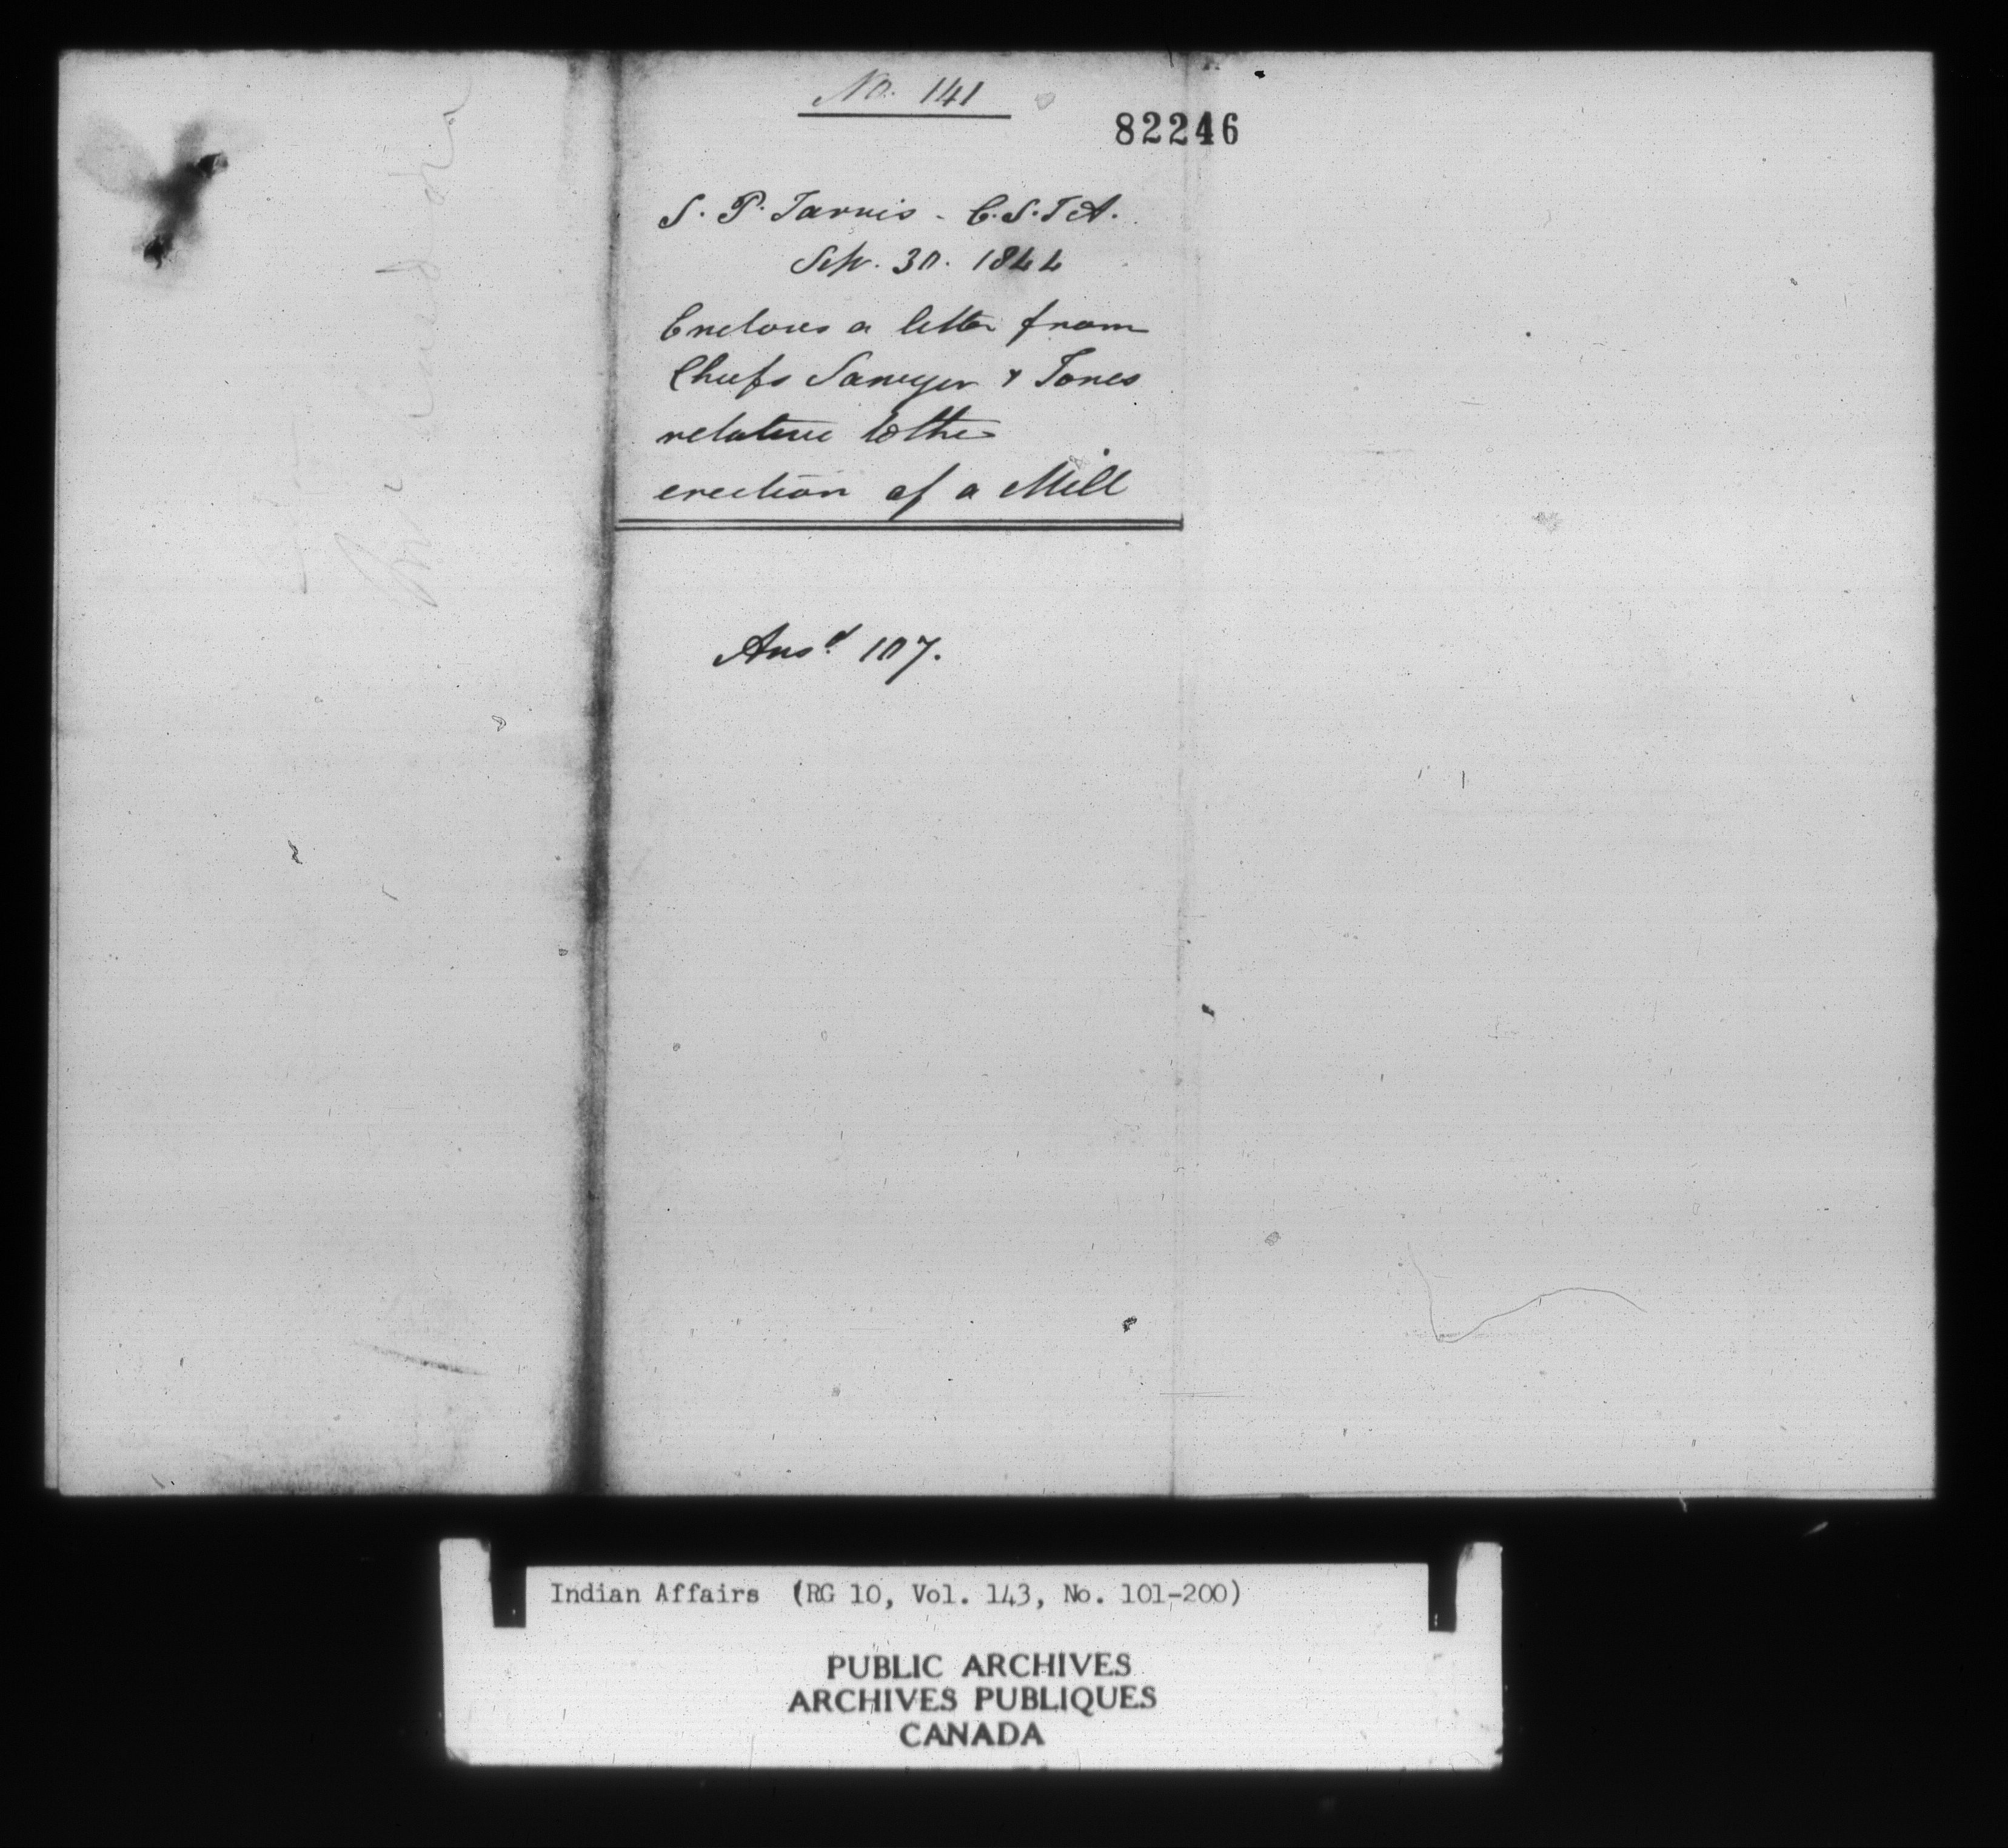 No. 141
82246
S. P. Jarvis - C.S.I A.
Sep. 30. 1844
Encloses a letter from
Chiefs Sawyer & Jones
relative to the
erection of a Mill
Ansd 107.
Indian Affairs (RG 10, Vol. 143, No. 101-200)
PUBLIC ARCHIVES
ARCHIVES PUBLIQUES
CANADA